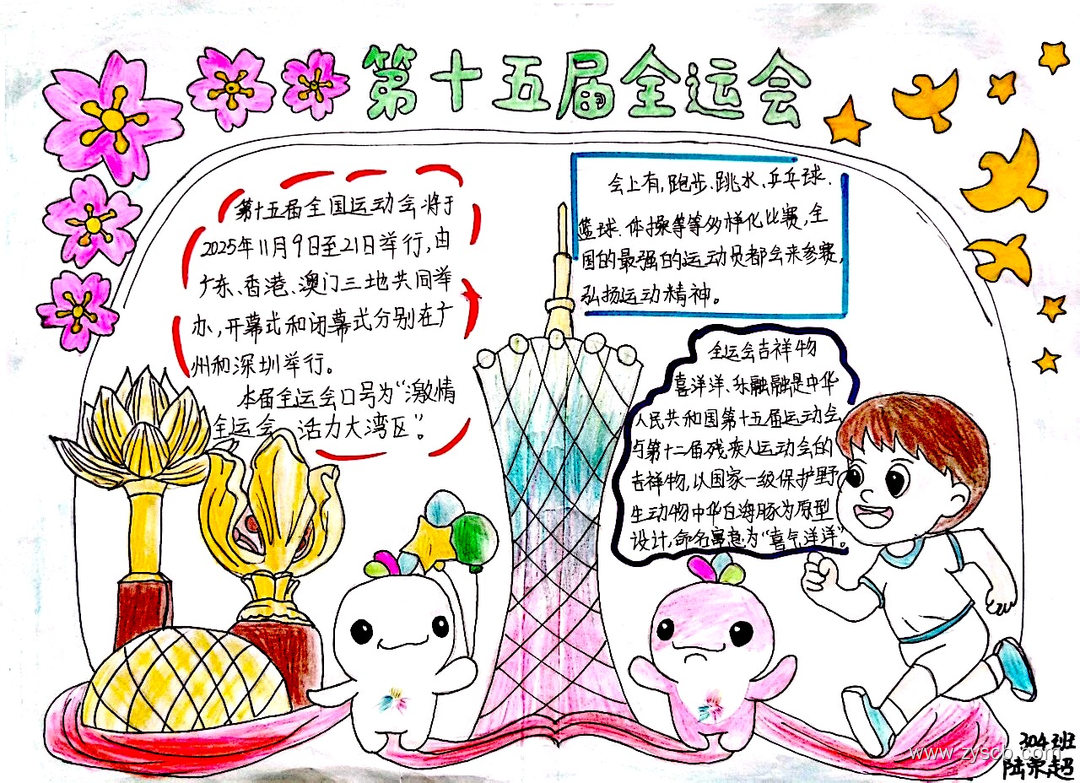 第十五届全运会
第十五届全国运动会将于
2025年11月9日至21日举行,由
广东、香港、澳门三地共同举
办,开幕式和闭幕式分别在广
州和深圳举行。
本届全运会口号为“激情
全运会 活力大湾区”。
会上有,跑步、跳水、乒乓球、
篮球、体操等等多样化比赛,全
国的最强的运动员都会来参赛,
弘扬运动精神。
全运会吉祥物
喜洋洋、乐融融是中华
人民共和国第十五届运动会
与第十二届残疾人运动会的
吉祥物,以国家一级保护野
生动物中华白海豚为原型
设计,命名寓意为“喜气洋洋”。
304班
陆荣超
www.zyscb.com